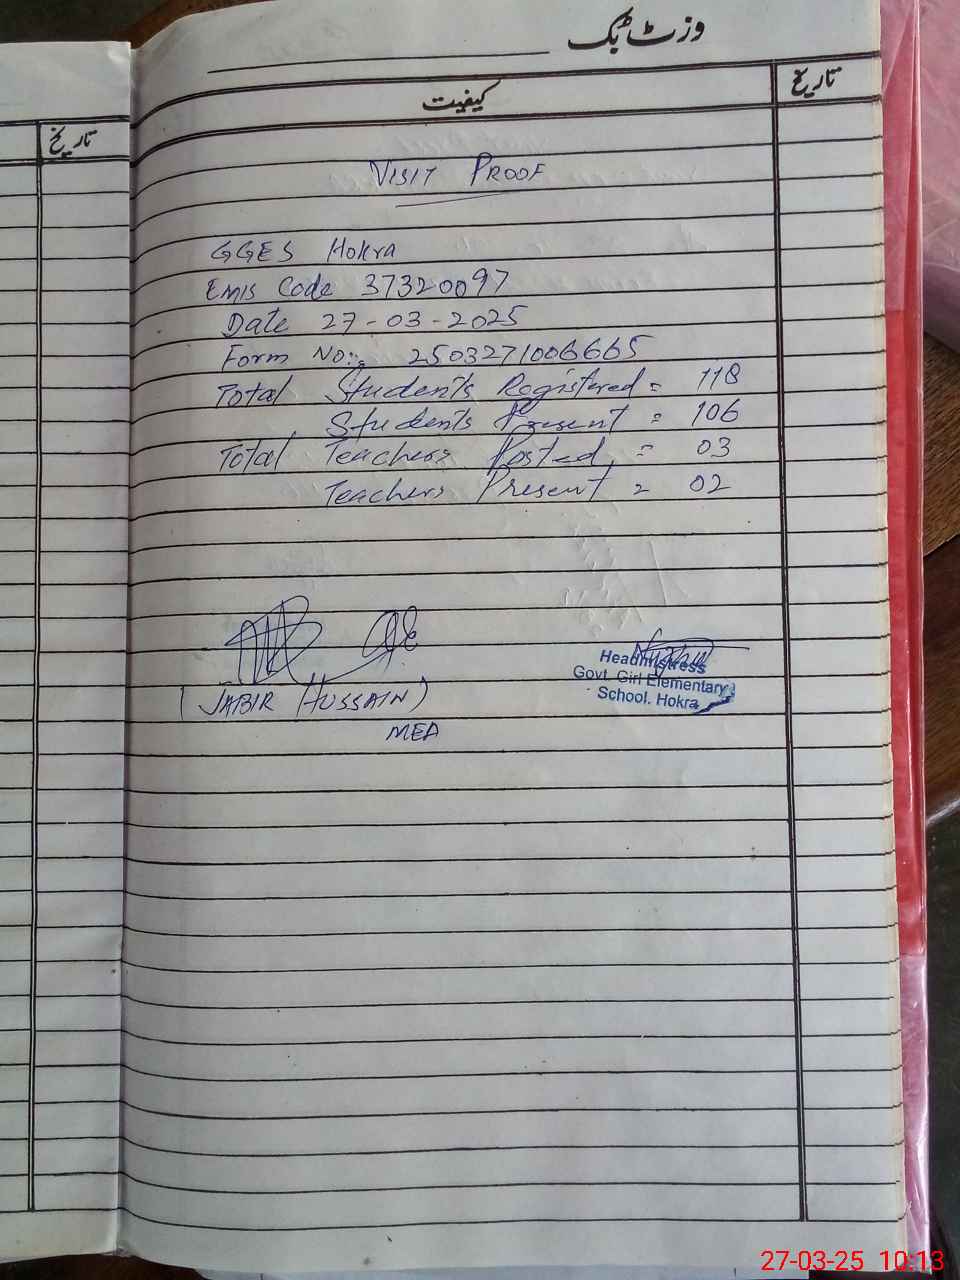 وزٹ بک
تاریخ
کیفیت
تاریخ
VISIT PROOF
GGES Hokra
EMIS Code 37320097
Date 27-03-2025
Form No:. 2503271006665
Total Students Registered = 118
Students Present = 106
Total Teachers Posted = 03
Teachers Present = 02
(JABIR HUSSAIN)
MEA
Headmistress
Govt. Girl Elementary
School. Hokra
27-03-25 10:13